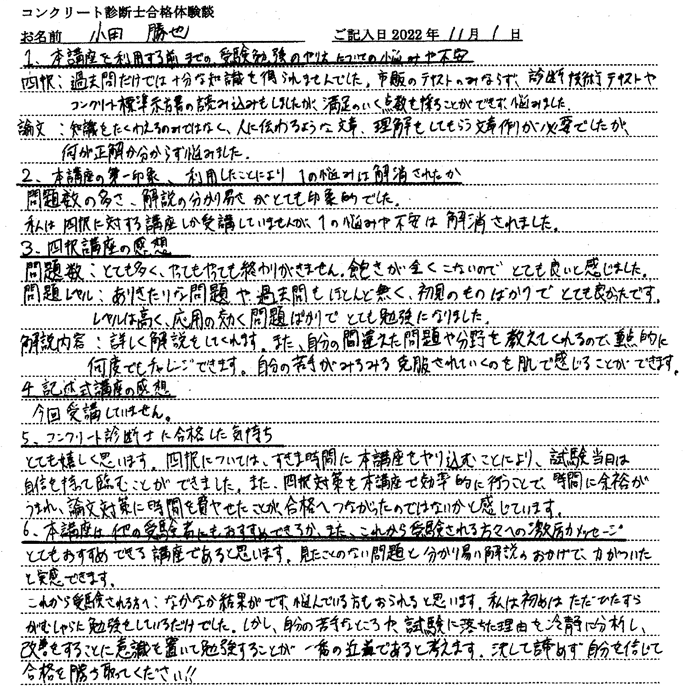 コンクリート診断士合格体験談
お名前 小田 勝也 ご記入日2022年 11月 1日
1、本講座を利用する前までの受験勉強のやり方についての悩みや不安
四択：過去問だけでは十分な知識を得られませんでした。市販のテキストのみならず、診断技術テキストや
コンクリート標準示方書の読み込みもしましたが、満足のいく点数を採ることができず、悩みました。
論文：知識をたくわえるのみではなく、人に伝わるような文章、理解をしてもらう文章作りが必要でしたが、
何が正解か分からず悩みました。
2、本講座の第一印象、利用したことにより1の悩みは解消されたか
問題数の多さ、解説の分かり易さがとても印象的でした。
私は四択に対する講座しか受講していませんが、1の悩みや不安は解消されました。
3、四択講座の感想
問題数：とても多く、やってもやっても終わりがきません。飽きが全くこないのでとても良いと感じました。
問題レベル：ありきたりな問題や過去問もほとんど無く、初見のものばかりでとても良かったです。
レベルは高く、応用の効く問題ばかりでとても勉強になりました。
解説内容：詳しく解説をしてくれます。また、自分の間違えた問題や分野を教えてくれるので、重点的に
何度でもチャレンジできます。自分の苦手がみるみる克服されていくのを肌で感じることができます。
4、記述式講座の感想
今回受講していません。
5、コンクリート診断士に合格した気持ち
とても嬉しく思います。四択については、すきま時間に本講座をやり込むことにより、試験当日は
自信を持って臨むことができました。また、四択対策を本講座で効率的に行うことで、時間に余裕が
うまれ、論文対策に時間を費やせたことが、合格へつながったのではないかと感じています。
6、本講座は他の受験者にもおすすめできるか、また、これから受験される方々への激励メッセージ
とてもおすすめできる講座であると思います。見たことのない問題と分かり易い解説のおかげで、力がついた
と実感できます。
これから受験される方へ：なかなか結果がでず、悩んでいる方もおられると思います。私は初めはただひたすら
がむしゃらに勉強をしているだけでした。しかし、自分の苦手なところや、試験に落ちた理由を冷静に分析し、
改善をすることに意識を置いて勉強することが一番の近道であると考えます。決して諦めず自分を信じて
合格を勝ち取ってください!!